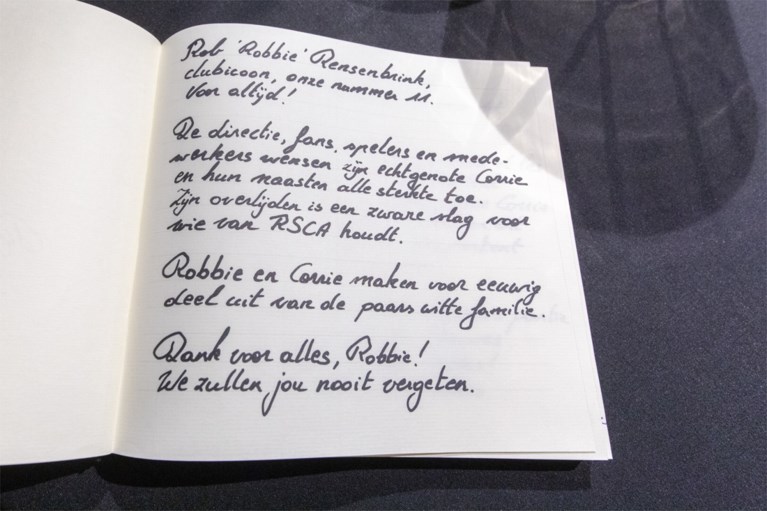 Rob 'Robbie' Rensenbrink,
clubicoon, onze nummer 11.
Voor altijd!
De directie, fans, spelers en mede-
werkers wensen zijn echtgenote Corrie
en hun naasten alle sterkte toe.
Zijn overlijden is een zware slag voor
wie van RSCA houdt.
Robbie en Corrie maken voor eeuwig
deel uit van de paars witte familie.
Dank voor alles, Robbie!
We zullen jou nooit vergeten.